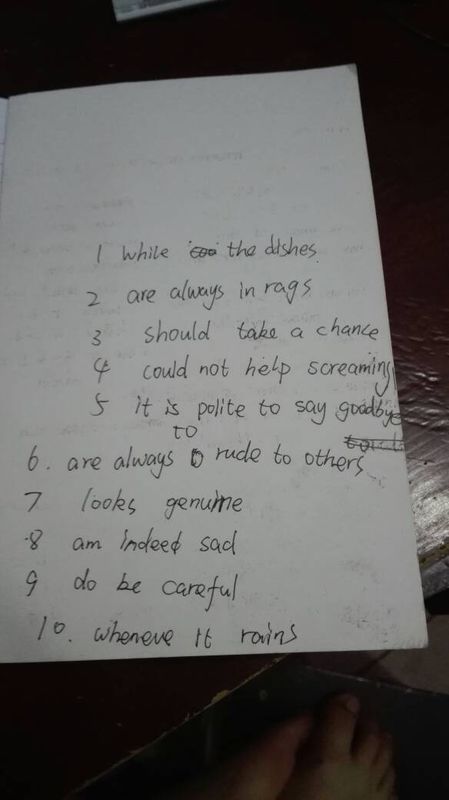 1 while the dishes
2 are always in rags
3 should take a chance
4 could not help screaming
5 it is polite to say goodbye
to
6. are always rude to others
7 looks genuine
8 am indeed sad
9 do be careful
10. wheneve it rains